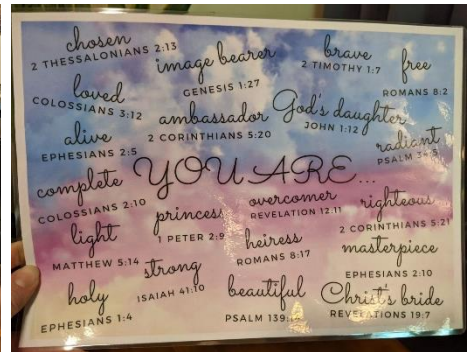 chosen
2 THESSALONIANS 2:13
image bearer
GENESIS 1:27
brave
2 TIMOTHY 1:7
free
ROMANS 8:2
loved
COLOSSIANS 3:12
ambassador
2 CORINTHIANS 5:20
God's daughter
JOHN 1:12
radiant
PSALM
alive
EPHESIANS 2:5
YOU ARE...
complete
COLOSSIANS 2:10
princess
1 PETER 2:9
overcomer
REVELATION 12:11
righteous
2 CORINTHIANS 5:21
light
MATTHEW 5:14
strong
ISAIAH 41:10
heiress
ROMANS 8:17
masterpiece
EPHESIANS 2:10
holy
EPHESIANS 1:4
beautiful
PSALM
Christ's bride
REVELATIONS 19:7